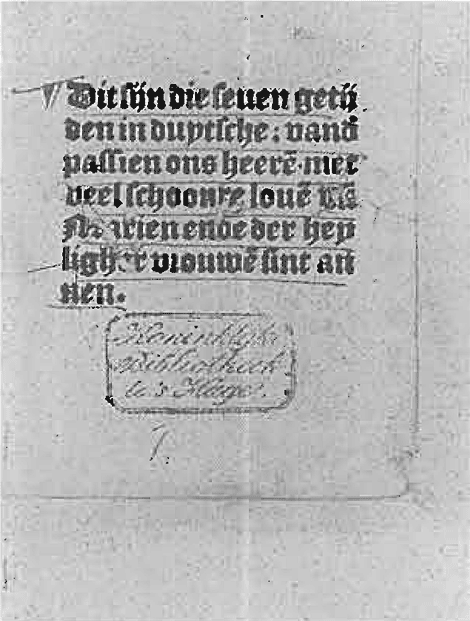 Dit sijn die seuen getij
den in duytsche: vand̄
passien ons heerē met
veel schoonre louē vā
Marien ende der hey
ligher vrouwē sint an
nen.
Koninklijke
Bibliotheek
te 's Hage.